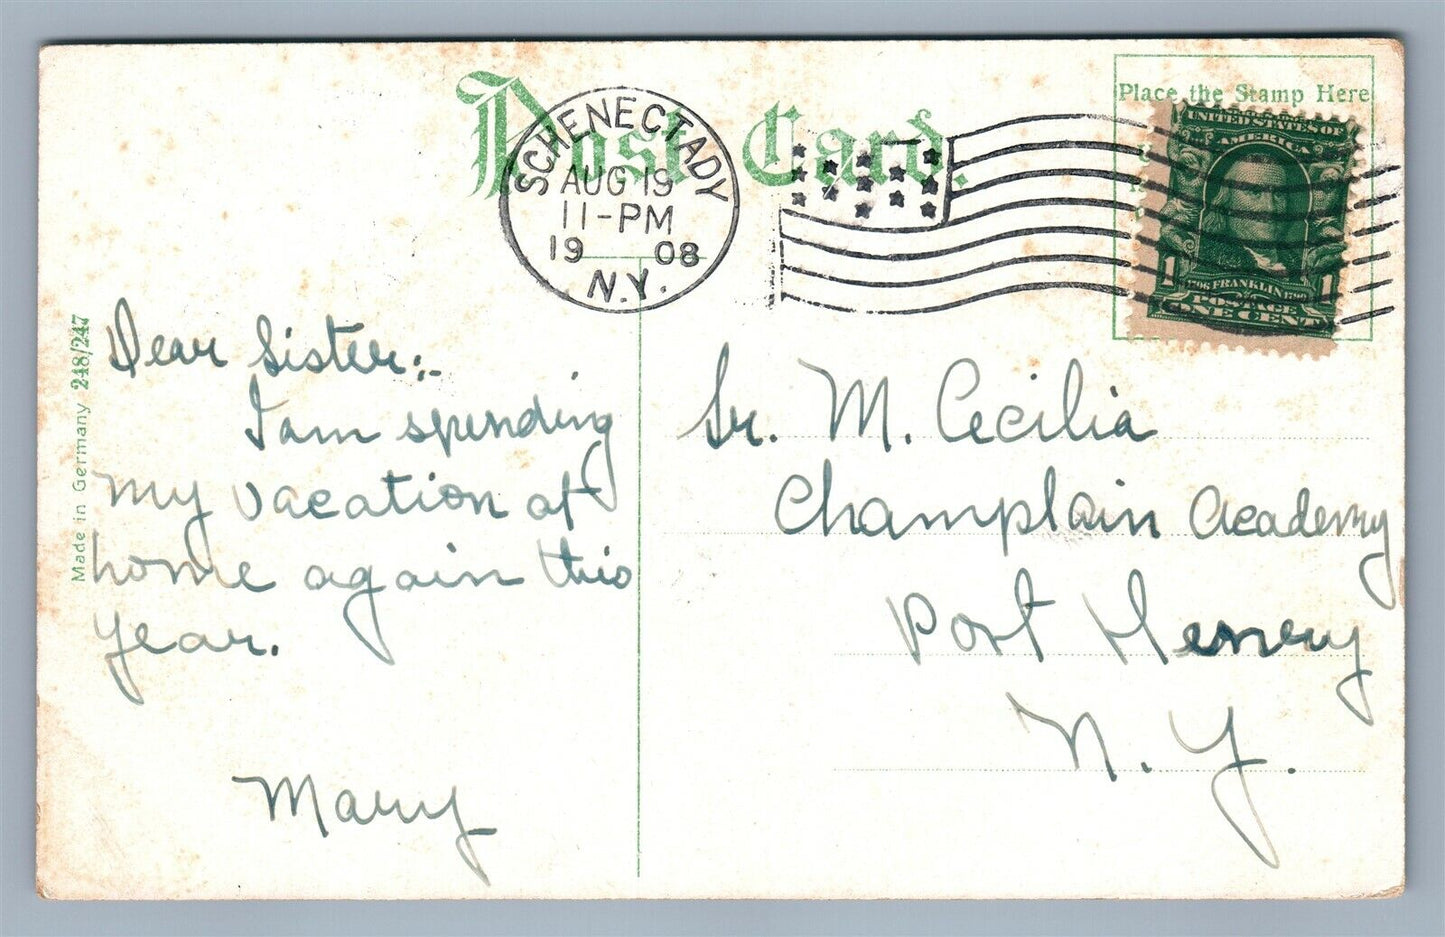 Post Card.
Place the Stamp Here
SCHENECTADY
AUG 19
11-PM
19 08
N.Y.
UNITED STATES OF
AMERICA
1 1
1706 FRANKLIN 1790
POSTAGE
ONE CENT
Made in Germany 248/247
Dear Sister:-
I am spending
my vacation at
home again this
year.
Mary
Sr. M. Cecilia
Champlain Academy
Port Henry
N. Y.